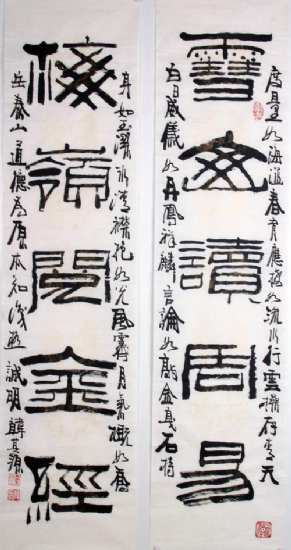 度量如海涵春育應接如流水行雲操存如青天
雪夜讀周易
白日威儀如丹鳳祥麟言論如敲金戛石持
身如玉潔冰清襟抱如光風霽月氣概如喬
梅嶺閱金經
岳泰山道德為原本知誠明韓其